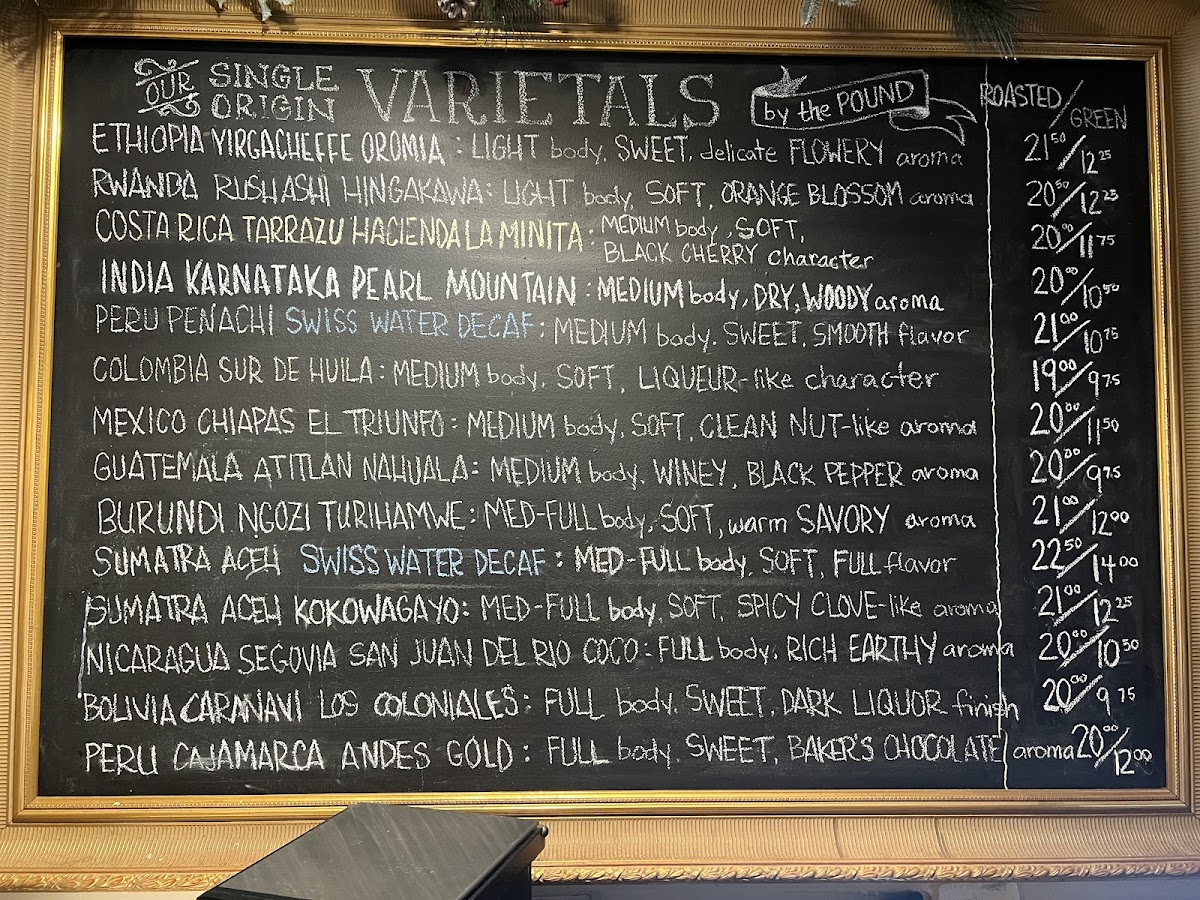 OUR SINGLE ORIGIN VARIETALS by the POUND ROASTED/GREEN
ETHIOPIA YIRGACHEFFE OROMIA : LIGHT body, SWEET, delicate FLOWERY aroma 21.50/12.25
RWANDA RUSHASHI HINGAKAWA: LIGHT body, SOFT, ORANGE BLOSSOM aroma 20.50/12.25
COSTA RICA TARRAZU HACIENDA LA MINITA : MEDIUM body, SOFT, 20.00/11.75
BLACK CHERRY character
INDIA KARNATAKA PEARL MOUNTAIN : MEDIUM body, DRY, WOODY aroma 20.00/10.50
PERU PENACHI SWISS WATER DECAF : MEDIUM body, SWEET, SMOOTH flavor 21.00/10.75
COLOMBIA SUR DE HUILA : MEDIUM body, SOFT, LIQUEUR-like character 19.00/9.75
MEXICO CHIAPAS EL TRIUNFO : MEDIUM body, SOFT, CLEAN NUT-like aroma 20.00/11.50
GUATEMALA ATITLAN NAHUALA : MEDIUM body, WINEY, BLACK PEPPER aroma 20.00/9.75
BURUNDI NGOZI TURIHAMWE : MED-FULL body, SOFT, warm SAVORY aroma 21.00/12.00
SUMATRA ACEH SWISS WATER DECAF : MED-FULL body, SOFT, FULL flavor 22.50/14.00
SUMATRA ACEH KOKOWAGAYO: MED-FULL body, SOFT, SPICY CLOVE-like aroma 21.00/12.25
NICARAGUA SEGOVIA SAN JUAN DEL RIO COCO : FULL body, RICH EARTHY aroma 20.00/10.50
BOLIVIA CARANAVI LOS COLONIALES : FULL body, SWEET, DARK LIQUOR finish 20.00/9.75
PERU CAJAMARCA ANDES GOLD : FULL body, SWEET, BAKER'S CHOCOLATE aroma 20.00/12.00